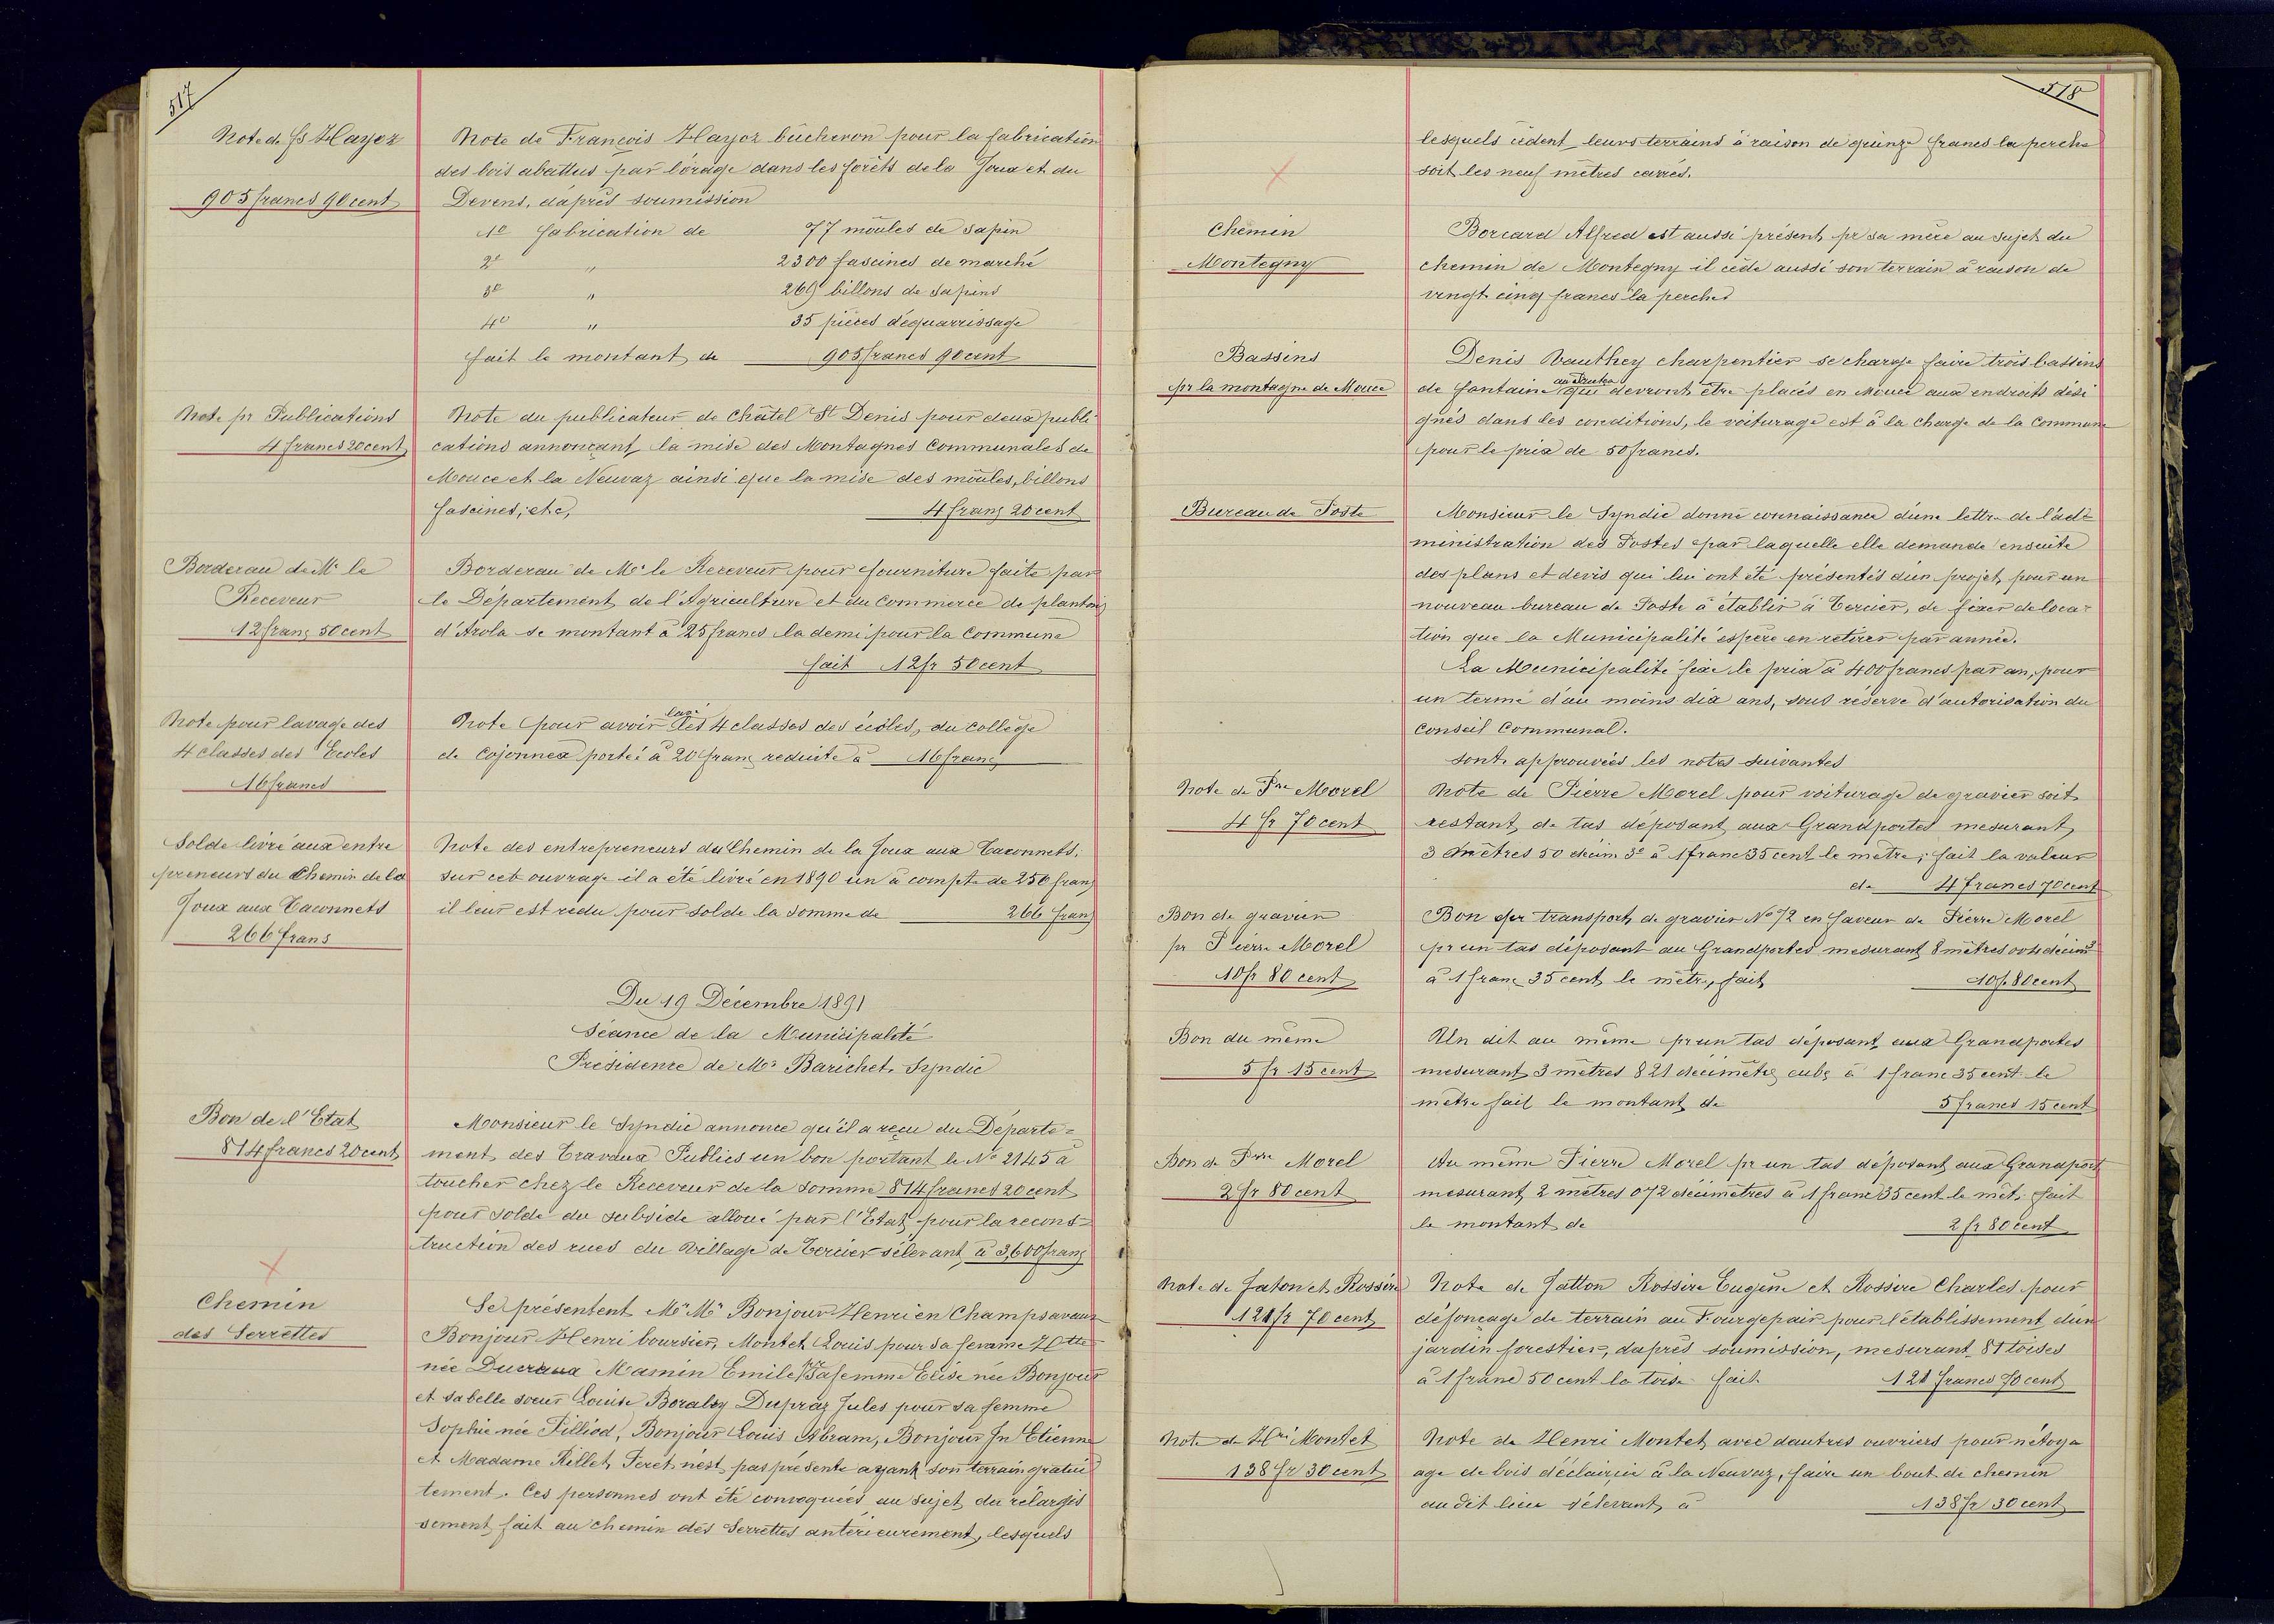 517
Note de fs Hayoz
905 francs 90 cent
Note de François Hayoz bûcheron pour la fabrication
des bois abattus par l'orage dans les forêts de la Joux et du
Devens, d'après soumission
1e fabrication de 77 moules de sapin
2e " 2300 fascines de marché
3e " 269 billons de sapins
4e " 35 pièces d'équarrissage
fait le montant de 905 francs 90 cent
Note pr Publications
4 francs 20 cent
Note du publicateur de Châtel St Denis pour deux publi
cations annonçant la mise des Montagnes Communales de
Mouce et la Neuvaz ainsi que la mise des moules, billons
fascines, etc, 4 franç 20 cent
Borderau de Mr le
Receveur
12 franç 50 cent
Borderau de Mr le Receveur pour fourniture faite par
le Département de l'Agriculture et du Commerce de plantons
d'Arola se montant à 25 francs la demi pour la Commune
fait 12 fr 50 cent
Note pour lavage des
4 classes des Ecoles
16 francs
Note pour avoir lavé les 4 classes des écoles, du collège
de Cojonnex portée à 20 franç reduite à 16 franç
Solde livré aux entre
preneurs du Chemin de la
Joux aux Taconnets
266 frans
Note des entrepreneurs du Chemin de la Joux aux Taconnets,
sur cet ouvrage il a été livré en 1890 un à compte de 250 franç
il leur est redu pour solde la somme de 266 franç
Du 19 Décembre 1891
Séance de la Municipalité
Présidence de Mr Barichet, Syndic
Bon de l'Etat
814 francs 20 cent
Monsieur le Syndic annonce qu'il a reçu du Départe=
ment des Travaux Publics un bon portant le No 2145 à
toucher chez le Receveur de la somme 814 francs 20 cent
pour solde du subside alloué par l'Etat pour la recons=
truction des rues du Village de Tercier s'élevant à 3,600 franç
Chemin
des Serrettes
Se présentent Mr Mr Bonjour Henri en Champsavaux
Bonjour Henri boursier, Montet Louis pour sa femme Htte
née Ducraux Mamin Emile pr sa femme Elise née Bonjour
et sa belle soeur Louise Boraley Dupraz Jules pour sa femme
Sophie née Pilliod, Bonjour Louis Abram, Bonjour Jn Etienne
et Madame Rillet Feret n'est pas présente ayant son terrain gratui
tement. Ces personnes ont été convoquées au sujet du rélargis
sement fait au chemin des Serrettes antérieurement, lesquels
518
lesquels cèdent leurs terrains à raison de quinze francs la perche
soit les neuf mètres carrés.
Chemin
Montegny
Borcard Alfred est aussi présent pr sa mère au sujet du
chemin de Montegny il cède aussi son terrain à raison de
vingt cinq francs la perches
Bassins
pr la montagne de Mouce
Denis Vauthey charpentier se charge faire trois bassins
de fontaine qui devront être placés en Mouce aux endroits dési
gnés dans les conditions, le voiturage est à la charge de la Commune
pour le prix de 50 francs.
Bureau de Poste
Monsieur le Syndic donne connaissance d'une lettre de l'ad=
ministration des Postes par laquelle elle demande ensuite
des plans et devis qui lui ont été présentés d'un projet pour un
nouveau bureau de Poste à établir à Tercier, de fixer de loca=
tion que la Municipalité espère en retirer par année.
La Municipalité fixe le prix à 400 francs par an, pour
un terme d'au moins dix ans, sous réserve d'autorisation du
Conseil Communal.
Sont approuvées les notes suivantes
Note de Pre Morel
4 fr 70 cent
Note de Pierre Morel pour voiturage de gravier soit
restant de tas déposant aux Grandportes mesurant
3 mètres 50 décim 3e à 1 franc 35 cent le mètre, fait la valeur
de 4 francs 70 cent
Bon de gravier
pr Pierre Morel
10 fr 80 cent
Bon pr transport de gravier No 72 en faveur de Pierre Morel
pr un tas déposant au Grandportes mesurant 8 mètres 004 décim3
à 1 franc 35 cent le mètre, fait 10 f. 80 cent
Bon du même
5 fr 15 cent
Un dit au même pr un tas déposant aux Grandportes
mesurant 3 mètres 821 décimètre cube à 1 franc 35 cent le
mètre fait le montant de 5 francs 15 cent
Bon de Pre Morel
2 fr 80 cent
Au même Pierre Morel pr un tas déposant aux Grandport
mesurant 2 mètres 072 décimètres à 1 franc 35 cent le mèt. fait
le montant de 2 fr 80 cent
Note de Jaton et Rossire
121 fr 70 cent
Note de Jatton Rossire Eugène et Rossire Charles pour
défonçage de terrain au Fourgepair pour l'établissement d'un
jardin forestier, d'après soumission, mesurant 81 toises
à 1 franc 50 cent la toise fait 121 francs 70 cent
Note de Hri Montet
138 fr 30 cent
Note de Henri Montet avec dautres ouvriers pour nétoya
age de bois d'éclaircie à la Neuvaz, faire un bout de chemin
au dit lieu s'élevant à 138 fr 30 cent